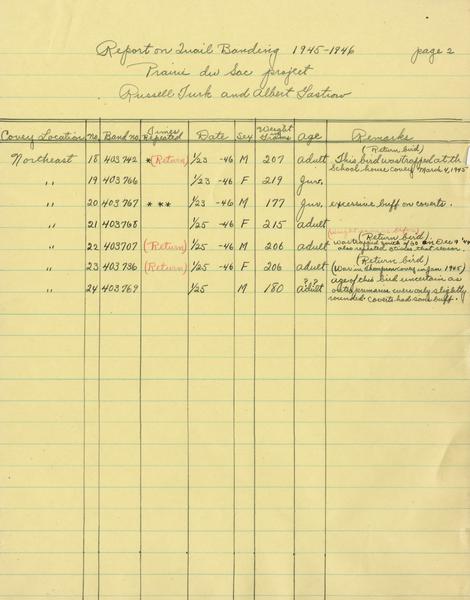 Report on Quail Banding 1945-1946 page 2
Prairie du Sac project
Russell Turk and Albert Gastrow
Covey Location No. Band no. Times Repeated Date Sex Weight Grams Age Remarks
Northeast 18 403742 * (Return) 1/23 -46 M 207 adult (Return bird) This bird was trapped at the School house covey March 4, 1945
" 19 403766 1/23 -46 F 219 Juv.
" 20 403767 * ** 1/23 -46 M 177 Juv. excessive buff on coverts.
" 21 403768 1/25 -46 F 215 adult
" 22 403707 (Return) 1/25 -46 M 206 adult (Return bird) was trapped on Dec 9 '44 also repeated times that season.
" 23 403736 (Return) 1/25 -46 F 206 adult (Return bird) (Was in Thompson covey in Jan 1945)
" 24 403769 1/25 M 180 adult ? age of this bird uncertain as outer primaries were only slightly rounded. Coverts had some buff.